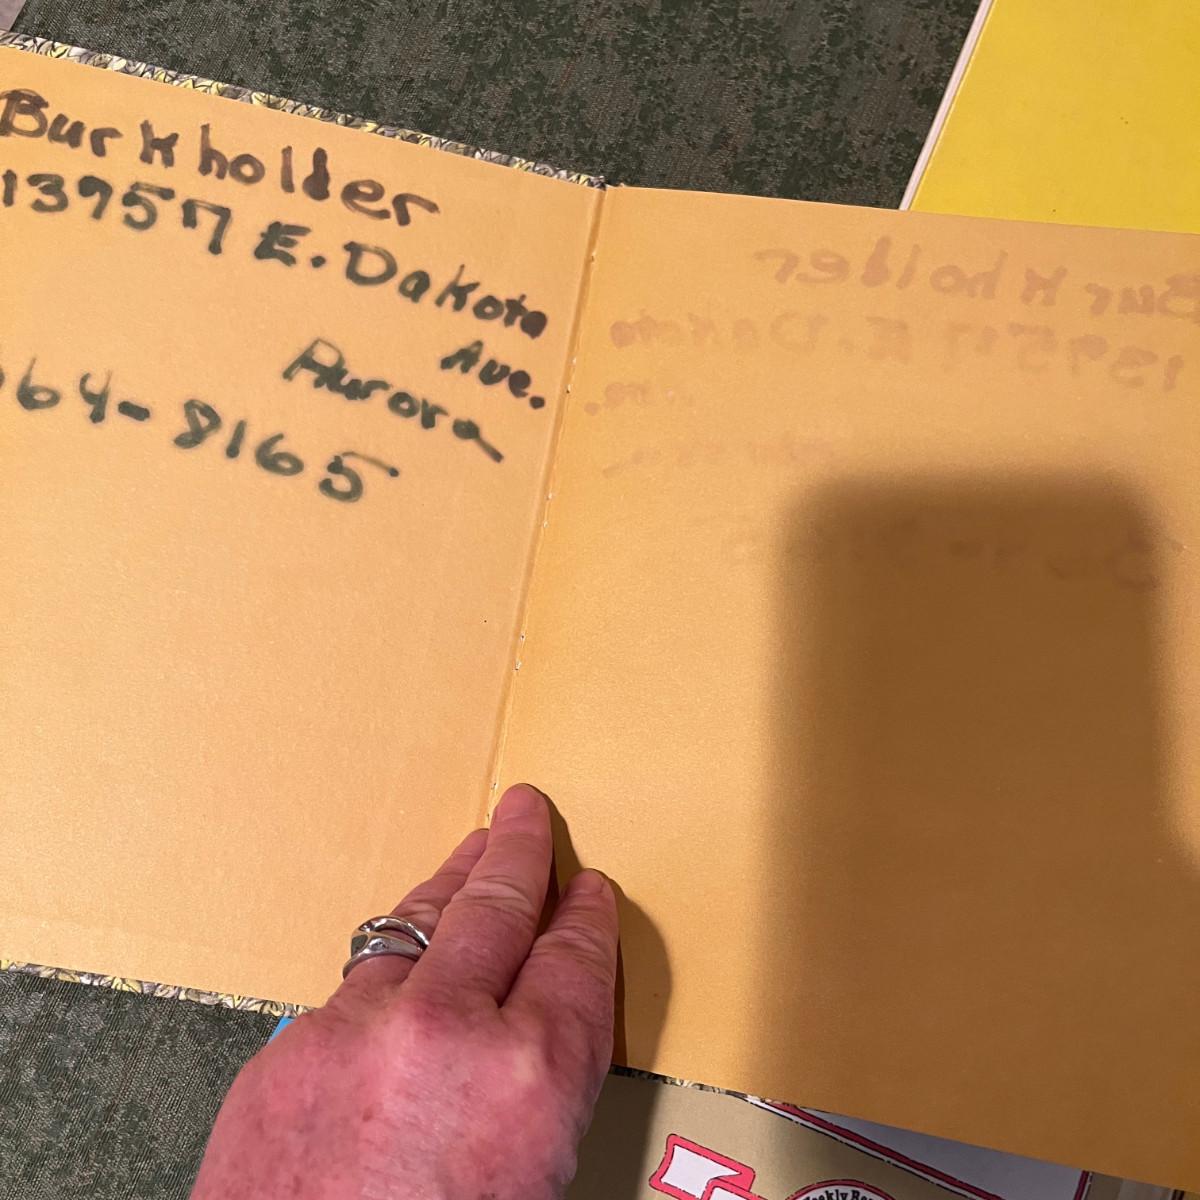 Burkholder
13957 E. Dakota
Ave.
Aurora
64-8165